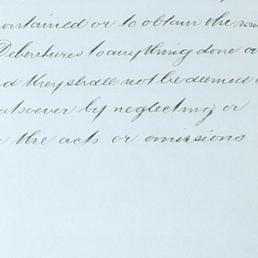 contained or to obtain the
Debentures to anything done
they shall not be deemed
by neglecting or
the acts or omissions